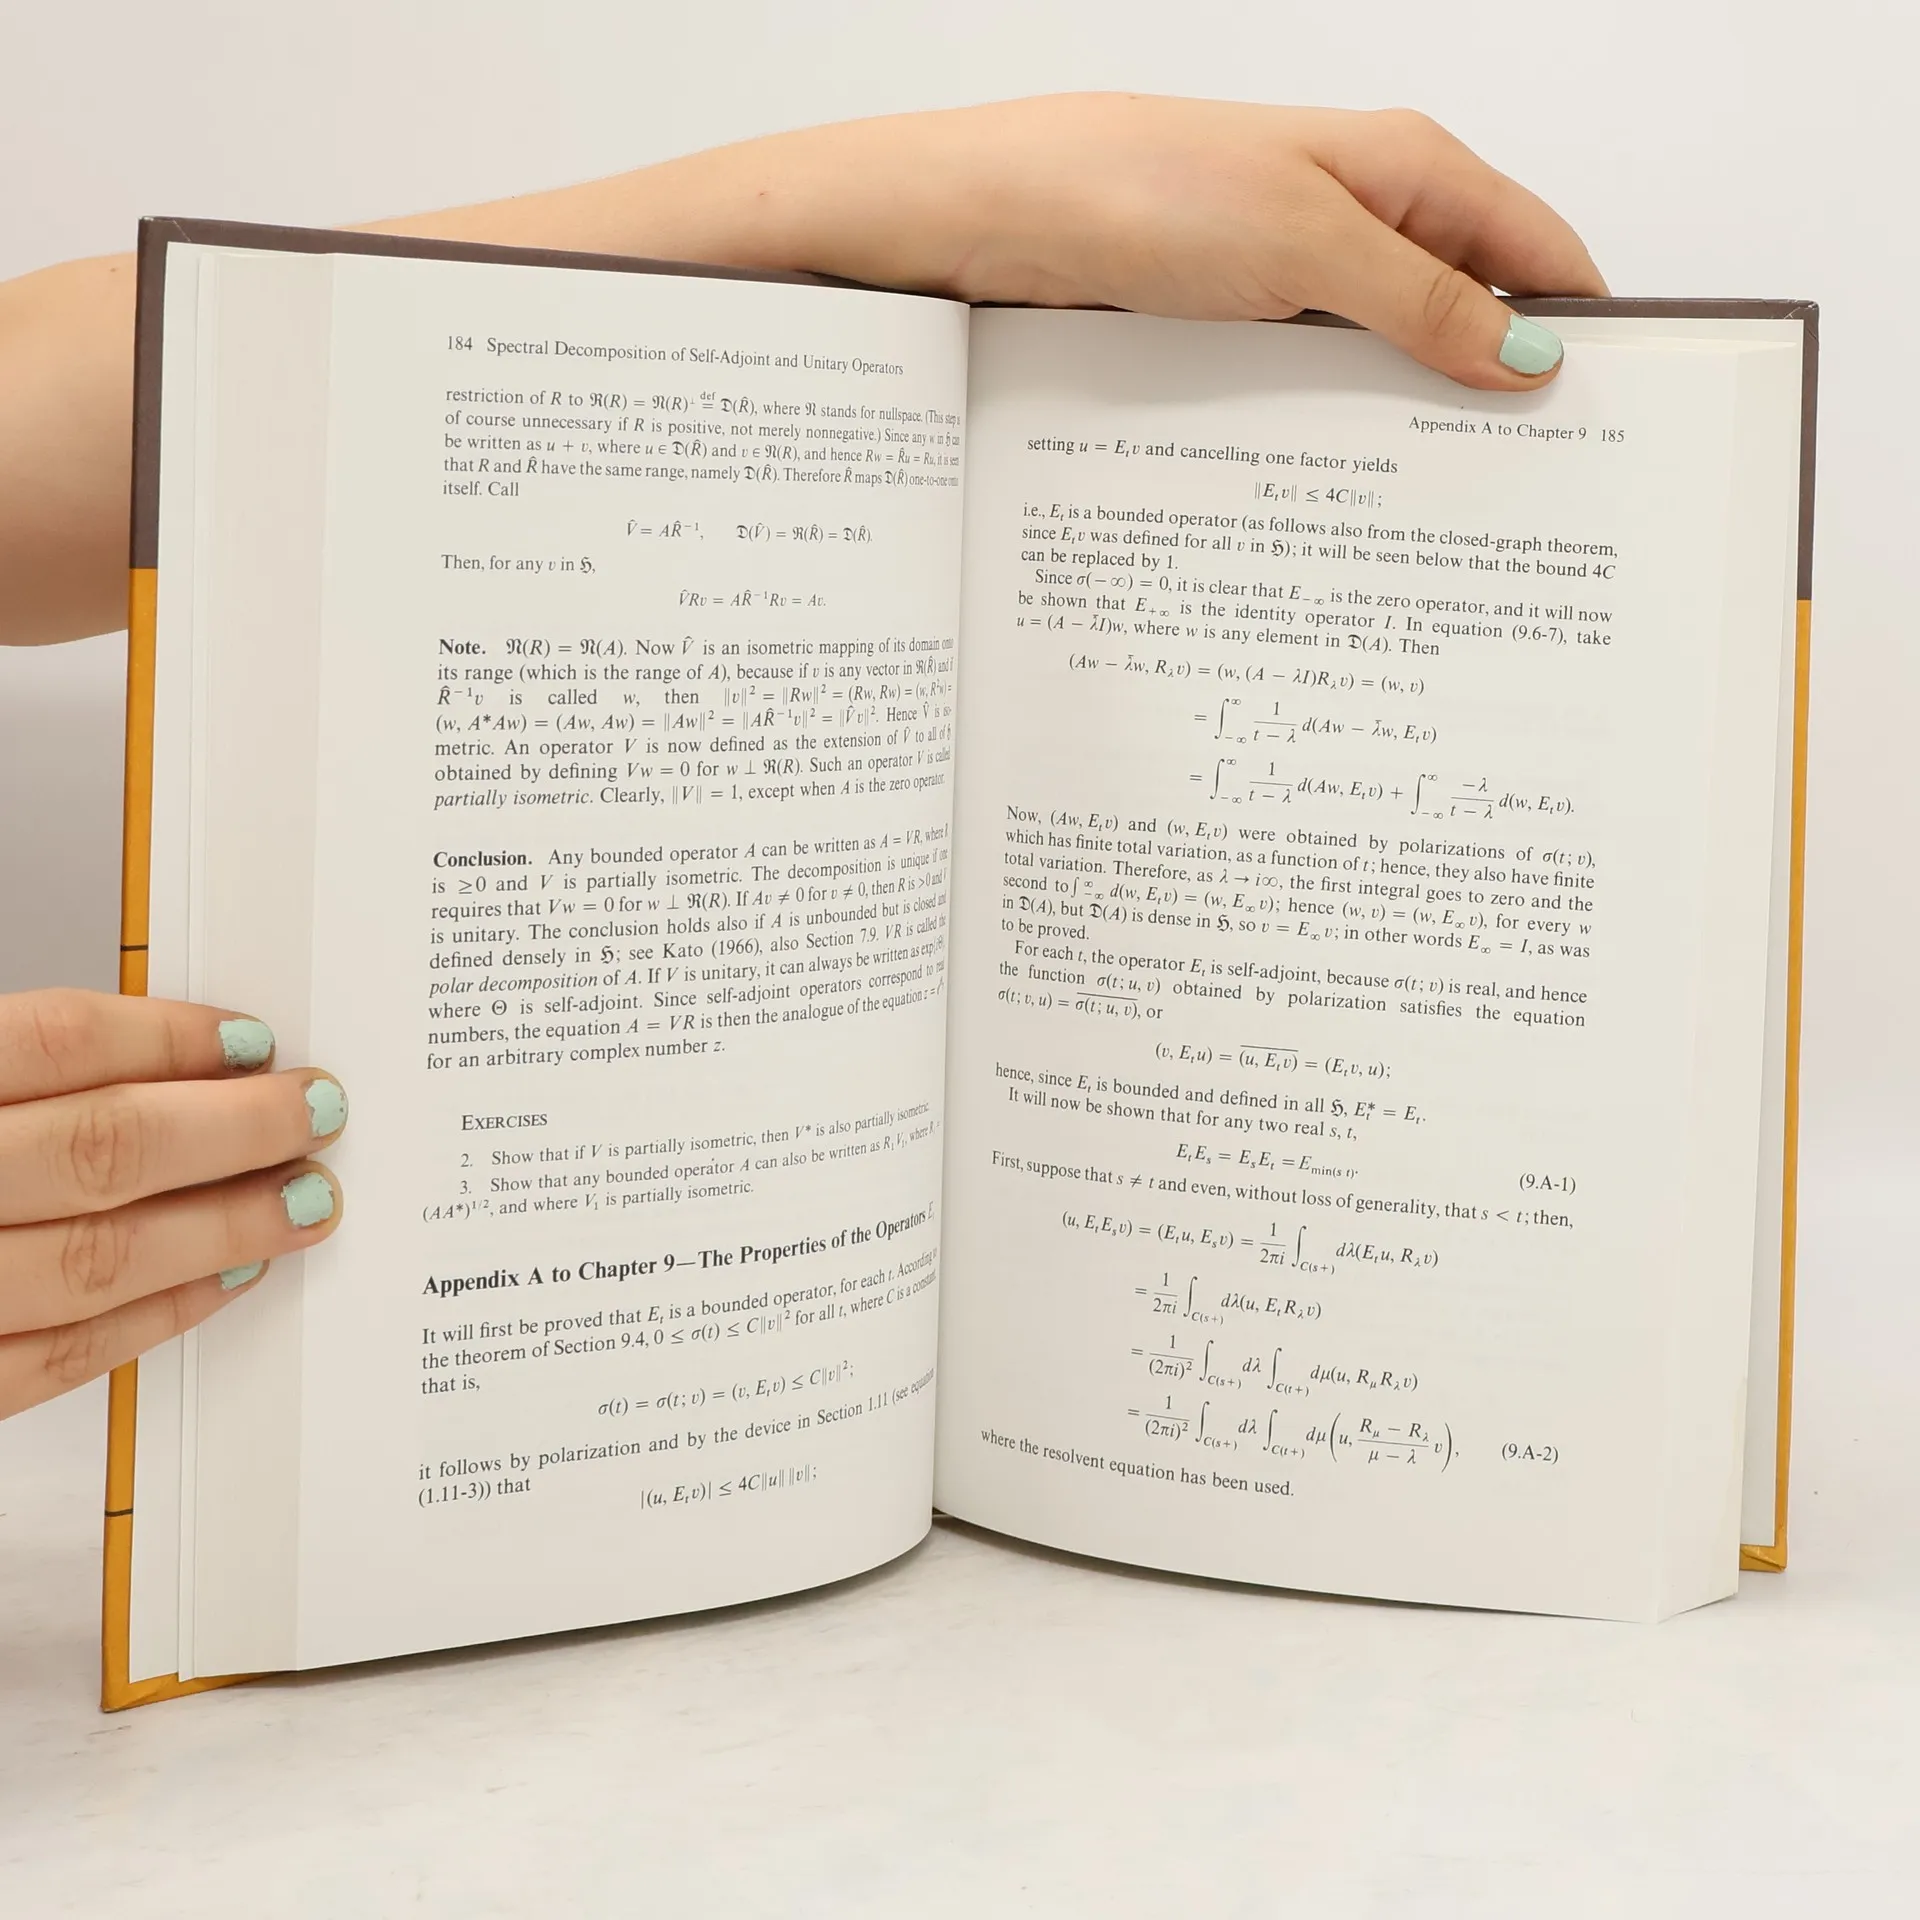 184 Spectral Decomposition of Self-Adjoint and Unitary Operators
restriction of R to ℜ(R) = 𝔑(R)⊥ def= 𝔇(R̂), where 𝔑 stands for nullspace. (This step is
of course unnecessary if R is positive, not merely nonnegative.) Since any w in ℌ can
be written as u + v, where u ∈ 𝔇(R̂) and v ∈ 𝔑(R), and hence Rw = R̂u = Ru, it is seen
that R and R̂ have the same range, namely 𝔇(R̂). Therefore R̂ maps 𝔇(R̂) one-to-one onto
itself. Call
V̂ = AR̂⁻¹, 𝔇(V̂) = ℜ(R̂) = 𝔇(R̂).
Then, for any v in ℌ,
V̂Rv = AR̂⁻¹Rv = Av.
Note. 𝔑(R) = 𝔑(A). Now V̂ is an isometric mapping of its domain onto
its range (which is the range of A), because if v is any vector in ℜ(R̂) and if
R̂⁻¹v is called w, then ‖v‖² = ‖Rw‖² = (Rw, Rw) = (w, R²w) =
(w, A*Aw) = (Aw, Aw) = ‖Aw‖² = ‖AR̂⁻¹v‖² = ‖V̂v‖². Hence V̂ is iso-
metric. An operator V is now defined as the extension of V̂ to all of ℌ
obtained by defining Vw = 0 for w ⊥ ℜ(R). Such an operator V is called
partially isometric. Clearly, ‖V‖ = 1, except when A is the zero operator.
Conclusion. Any bounded operator A can be written as A = VR, where R
is ≥0 and V is partially isometric. The decomposition is unique if one
requires that Vw = 0 for w ⊥ ℜ(R). If Av ≠ 0 for v ≠ 0, then R is >0 and V
is unitary. The conclusion holds also if A is unbounded but is closed and
defined densely in ℌ; see Kato (1966), also Section 7.9. VR is called the
polar decomposition of A. If V is unitary, it can always be written as exp(iΘ),
where Θ is self-adjoint. Since self-adjoint operators correspond to real
numbers, the equation A = VR is then the analogue of the equation z =
for an arbitrary complex number z.
EXERCISES
2. Show that if V is partially isometric, then V* is also partially isometric.
3. Show that any bounded operator A can also be written as R₁V₁, where R₁ =
(AA*)^1/2, and where V₁ is partially isometric.
Appendix A to Chapter 9—The Properties of the Operators Eₜ
It will first be proved that Eₜ is a bounded operator, for each t. According to
the theorem of Section 9.4, 0 ≤ σ(t) ≤ C‖v‖² for all t, where C is a constant,
that is,
σ(t) = σ(t; v) = (v, Eₜv) ≤ C‖v‖²;
it follows by polarization and by the device in Section 1.11 (see equation
(1.11-3)) that
|(u, Eₜv)| ≤ 4C‖u‖ ‖v‖;
Appendix A to Chapter 9 185
setting u = Eₜv and cancelling one factor yields
‖Eₜv‖ ≤ 4C‖v‖;
i.e., Eₜ is a bounded operator (as follows also from the closed-graph theorem,
since Eₜv was defined for all v in ℌ); it will be seen below that the bound 4C
can be replaced by 1.
Since σ(−∞) = 0, it is clear that E₋∞ is the zero operator, and it will now
be shown that E₊∞ is the identity operator I. In equation (9.6-7), take
u = (A − λ̄I)w, where w is any element in 𝔇(A). Then
(Aw − λ̄w, R_λv) = (w, (A − λI)R_λv) = (w, v)
= ∫_−∞^∞ 1/(t − λ) d(Aw − λ̄w, Eₜv)
= ∫_−∞^∞ 1/(t − λ) d(Aw, Eₜv) + ∫_−∞^∞ −λ/(t − λ) d(w, Eₜv).
Now, (Aw, Eₜv) and (w, Eₜv) were obtained by polarizations of σ(t; v),
which has finite total variation, as a function of t; hence, they also have finite
total variation. Therefore, as λ → i∞, the first integral goes to zero and the
second to ∫_−∞^∞ d(w, Eₜv) = (w, E∞v); hence (w, v) = (w, E∞v), for every w
in 𝔇(A), but 𝔇(A) is dense in ℌ, so v = E∞v; in other words E∞ = I, as was
to be proved.
For each t, the operator Eₜ is self-adjoint, because σ(t; v) is real, and hence
the function σ(t; u, v) obtained by polarization satisfies the equation
σ(t; v, u) = \overline{σ(t; u, v)}, or
(v, Eₜu) = \overline{(u, Eₜv)} = (Eₜv, u);
hence, since Eₜ is bounded and defined in all ℌ, Eₜ* = Eₜ.
It will now be shown that for any two real s, t,
EₜEₛ = EₛEₜ = E_min(s t). (9.A-1)
First, suppose that s ≠ t and even, without loss of generality, that s < t; then,
(u, EₜEₛv) = (Eₜu, Eₛv) = 1/2πi ∫_C(s+) dλ(Eₜu, R_λv)
= 1/2πi ∫_C(s+) dλ(u, EₜR_λv)
= 1/(2πi)² ∫_C(s+) dλ ∫_C(t+) dμ(u, R_μR_λv)
= 1/(2πi)² ∫_C(s+) dλ ∫_C(t+) dμ(u, (R_μ − R_λ)/(μ − λ) v), (9.A-2)
where the resolvent equation has been used.